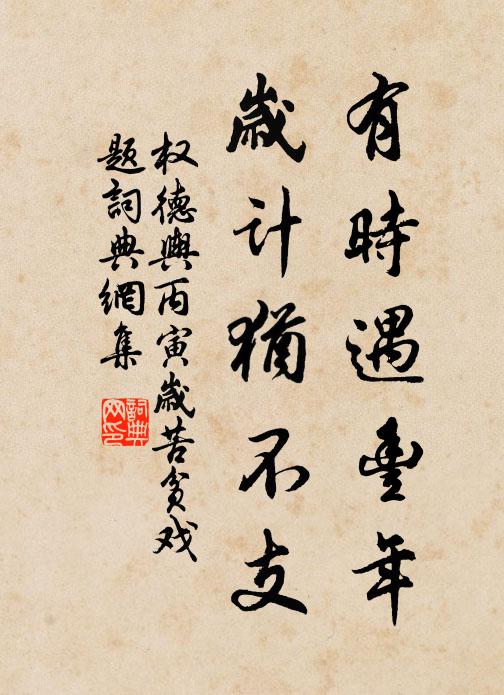 有時遇豊年
歲计猶不支
权德輿丙寅歲苦貧戏
題詞典網集
詞典网印